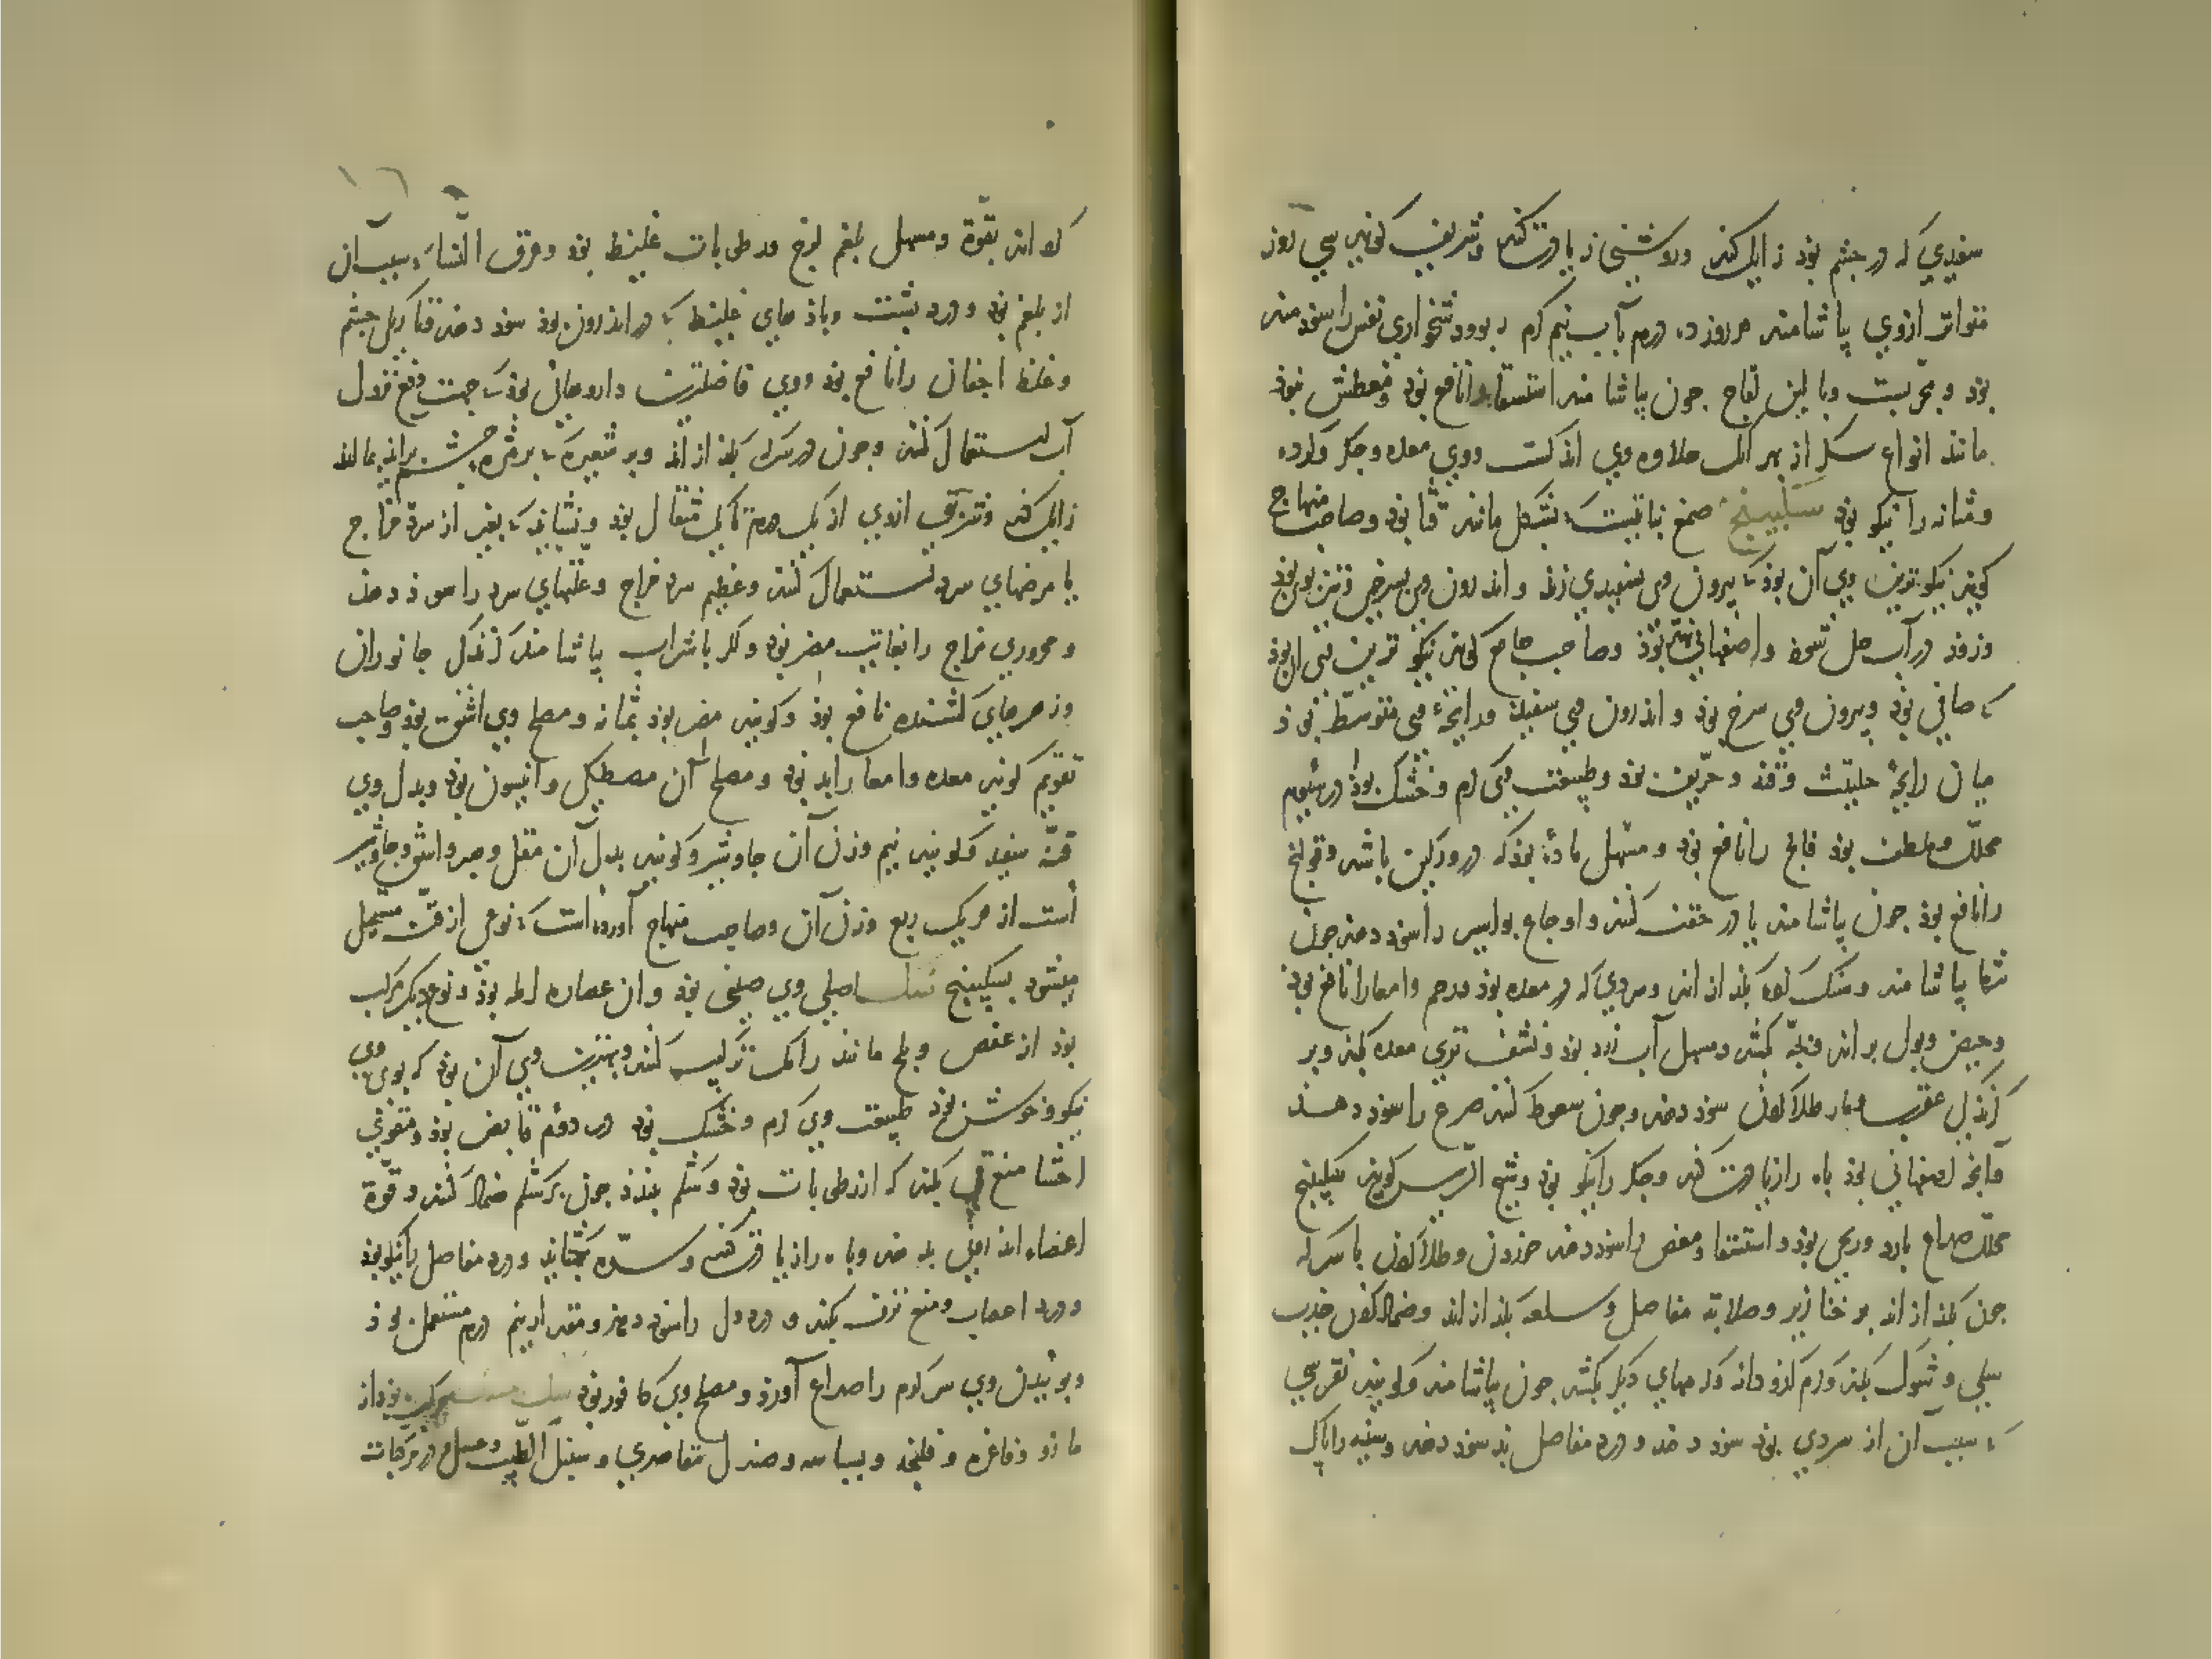 سفیدی که در چشم بوذ زایل کند و روشنی زیادت کند و شریف کویذ سی روز
متواتر ازوی بیاشامند هر روز ده درم بآب نیم کرم ربو و دشخواری نفس را سوذ دهد
بوذ و مجربست و با لبن لقاح جون بیاشامند استسقا را نافع بوذ و معطش نبوذ
مانند انواع سکر از بهر آنک حلاوه وی اندکست و وی معده و جکر و کرده
و مثانه را نیکو بوذ سکبینج صمغ نباتیست بشکل مانند قثا بوذ و صاحب منهاج
کوید نیکوترین وی آن بوذ که بیرون وی بسفیدی زند و اندرون وی بسرخی و تیز بوی بوذ
و زود در آب حل شود و اصفهانی بهتر بوذ و صاحب جامع کوید نیکوترین وی آن بوذ
که صافی بوذ و بیرون وی سرخ بوذ و اندرون وی سفید و رایحهٔ وی متوسط بوذ
میان رایحهٔ حلتیت و قنه و حریف بوذ و طبیعت وی کرم و خشک بوذ در سیوم
محلل و ملطف بوذ فالج را نافع بوذ و مسهل مادهٔ بوذ که در ورکین باشد و قولنج
را نافع بوذ جون بیاشامند یا در حقنه کنند و اوجاع بواسیر را سوذ دهد جون
تنها بیاشامند و سنک کرده بکذازاند و سردی که در معده بوذ و رحم و امعا را نافع بوذ
و حیض و بول براند و بجه بکشد و مسهل آب زرد بوذ و نشف تری معده بکند و بر
کزندکی عقرب و مار طلا کردن سوذ دهد و جون سعوط کنند صرع را سوذ دهد
و آنج اصفهانی بوذ باه را زیادت کند و جکر را نیکو بوذ و شیخ الرئیس کوید سکبینج
محلل صداع بارد و ریحی بوذ و استسقا و مغص را سوذ دهد خوردن و طلا کردن با سرکه
جون بکذازاند بر خنازیر و صلابة مفاصل و سلعه بکذازاند و ضماد کردن جذب
سلی و شوک بکند و کرم کدو دانه و کرمهای دیکر بکشد جون بیاشامند و کویند نقرسی
که سبب آن از سردی بوذ سوذ دهد و درد مفاصل نیز سوذ دهد و سینه را پاک
کرداند بقوة و مسهل بلغم لزج و رطوبات غلیظ بوذ و عرق النسا که سبب آن
از بلغم بوذ و درد پشت و بادهای غلیظ که در اندرون بوذ سوذ دهد و تاریکی چشم
و غلظ اجفان را نافع بوذ و وی فاضلترین داروهائی بوذ که جهت دفع نزول
آب استعمال کنند و جون در سرکه بکذازاند و بر شعیره که بر مژهٔ چشم بر آید بمالند
زایل کند و شربتی ازوی از یک درم تا یک مثقال بوذ و نشاید که بغیر از سرد مزاج
یا مرضهای سرد استعمال کنند و عظیم سرد مزاج و علتهای سرد را سوذ دهد
و محروری مزاج را بغایت مضر بوذ و کر با شراب بیاشامند کزندکی جانوران
و زهرهای کشنده نافع بوذ و کویند مضر بوذ بمثانه و مصلح وی اشق بوذ و صاحب
تقویم کوید معده و امعا را بد بوذ و مصلح آن مصطکی و انیسون بوذ و بدل وی
قنه سفید و کویند نیم وزن آن جاوشیر و کویند بدل آن مقل و صبر و اشق و جاوشیر
است از هر یک ربع وزن آن و صاحب منهاج آورده است که نوعی از قنه مستحیل
میشود بسکبینج سک اصلی وی صینی بوذ و آن عصاره املج بوذ و نوع دیکر مرکب
بوذ از عفص و بلح مانند رامک ترکیب کنند و بهترین وی آن بوذ که بوی وی
نیکو و خوش بوذ طبیعت وی کرم و خشک بوذ در دوم قابض بوذ و مقوی
احشا منع قی بکند که از رطوبات بوذ و شکم ببندد جون بر شکم ضماد کنند و قوة
اعضاء اندرونی بدهد و باه را زیادت کند و سده بکشاید و درد مفاصل را نیکو بوذ
و درد اعصاب و منع نزف بکند و درد دل را سوذ دهد و مقدار نیم درم مستعمل بوذ
و بوئیدن وی سر کرم را صداع آورد و مصلح وی کافور بوذ سک مسک مرکب بوذ از
مازو و فاغره و فلنجه و بسباسه و صندل مقاصری و سنبل الطیب و عسل و در مرکبات